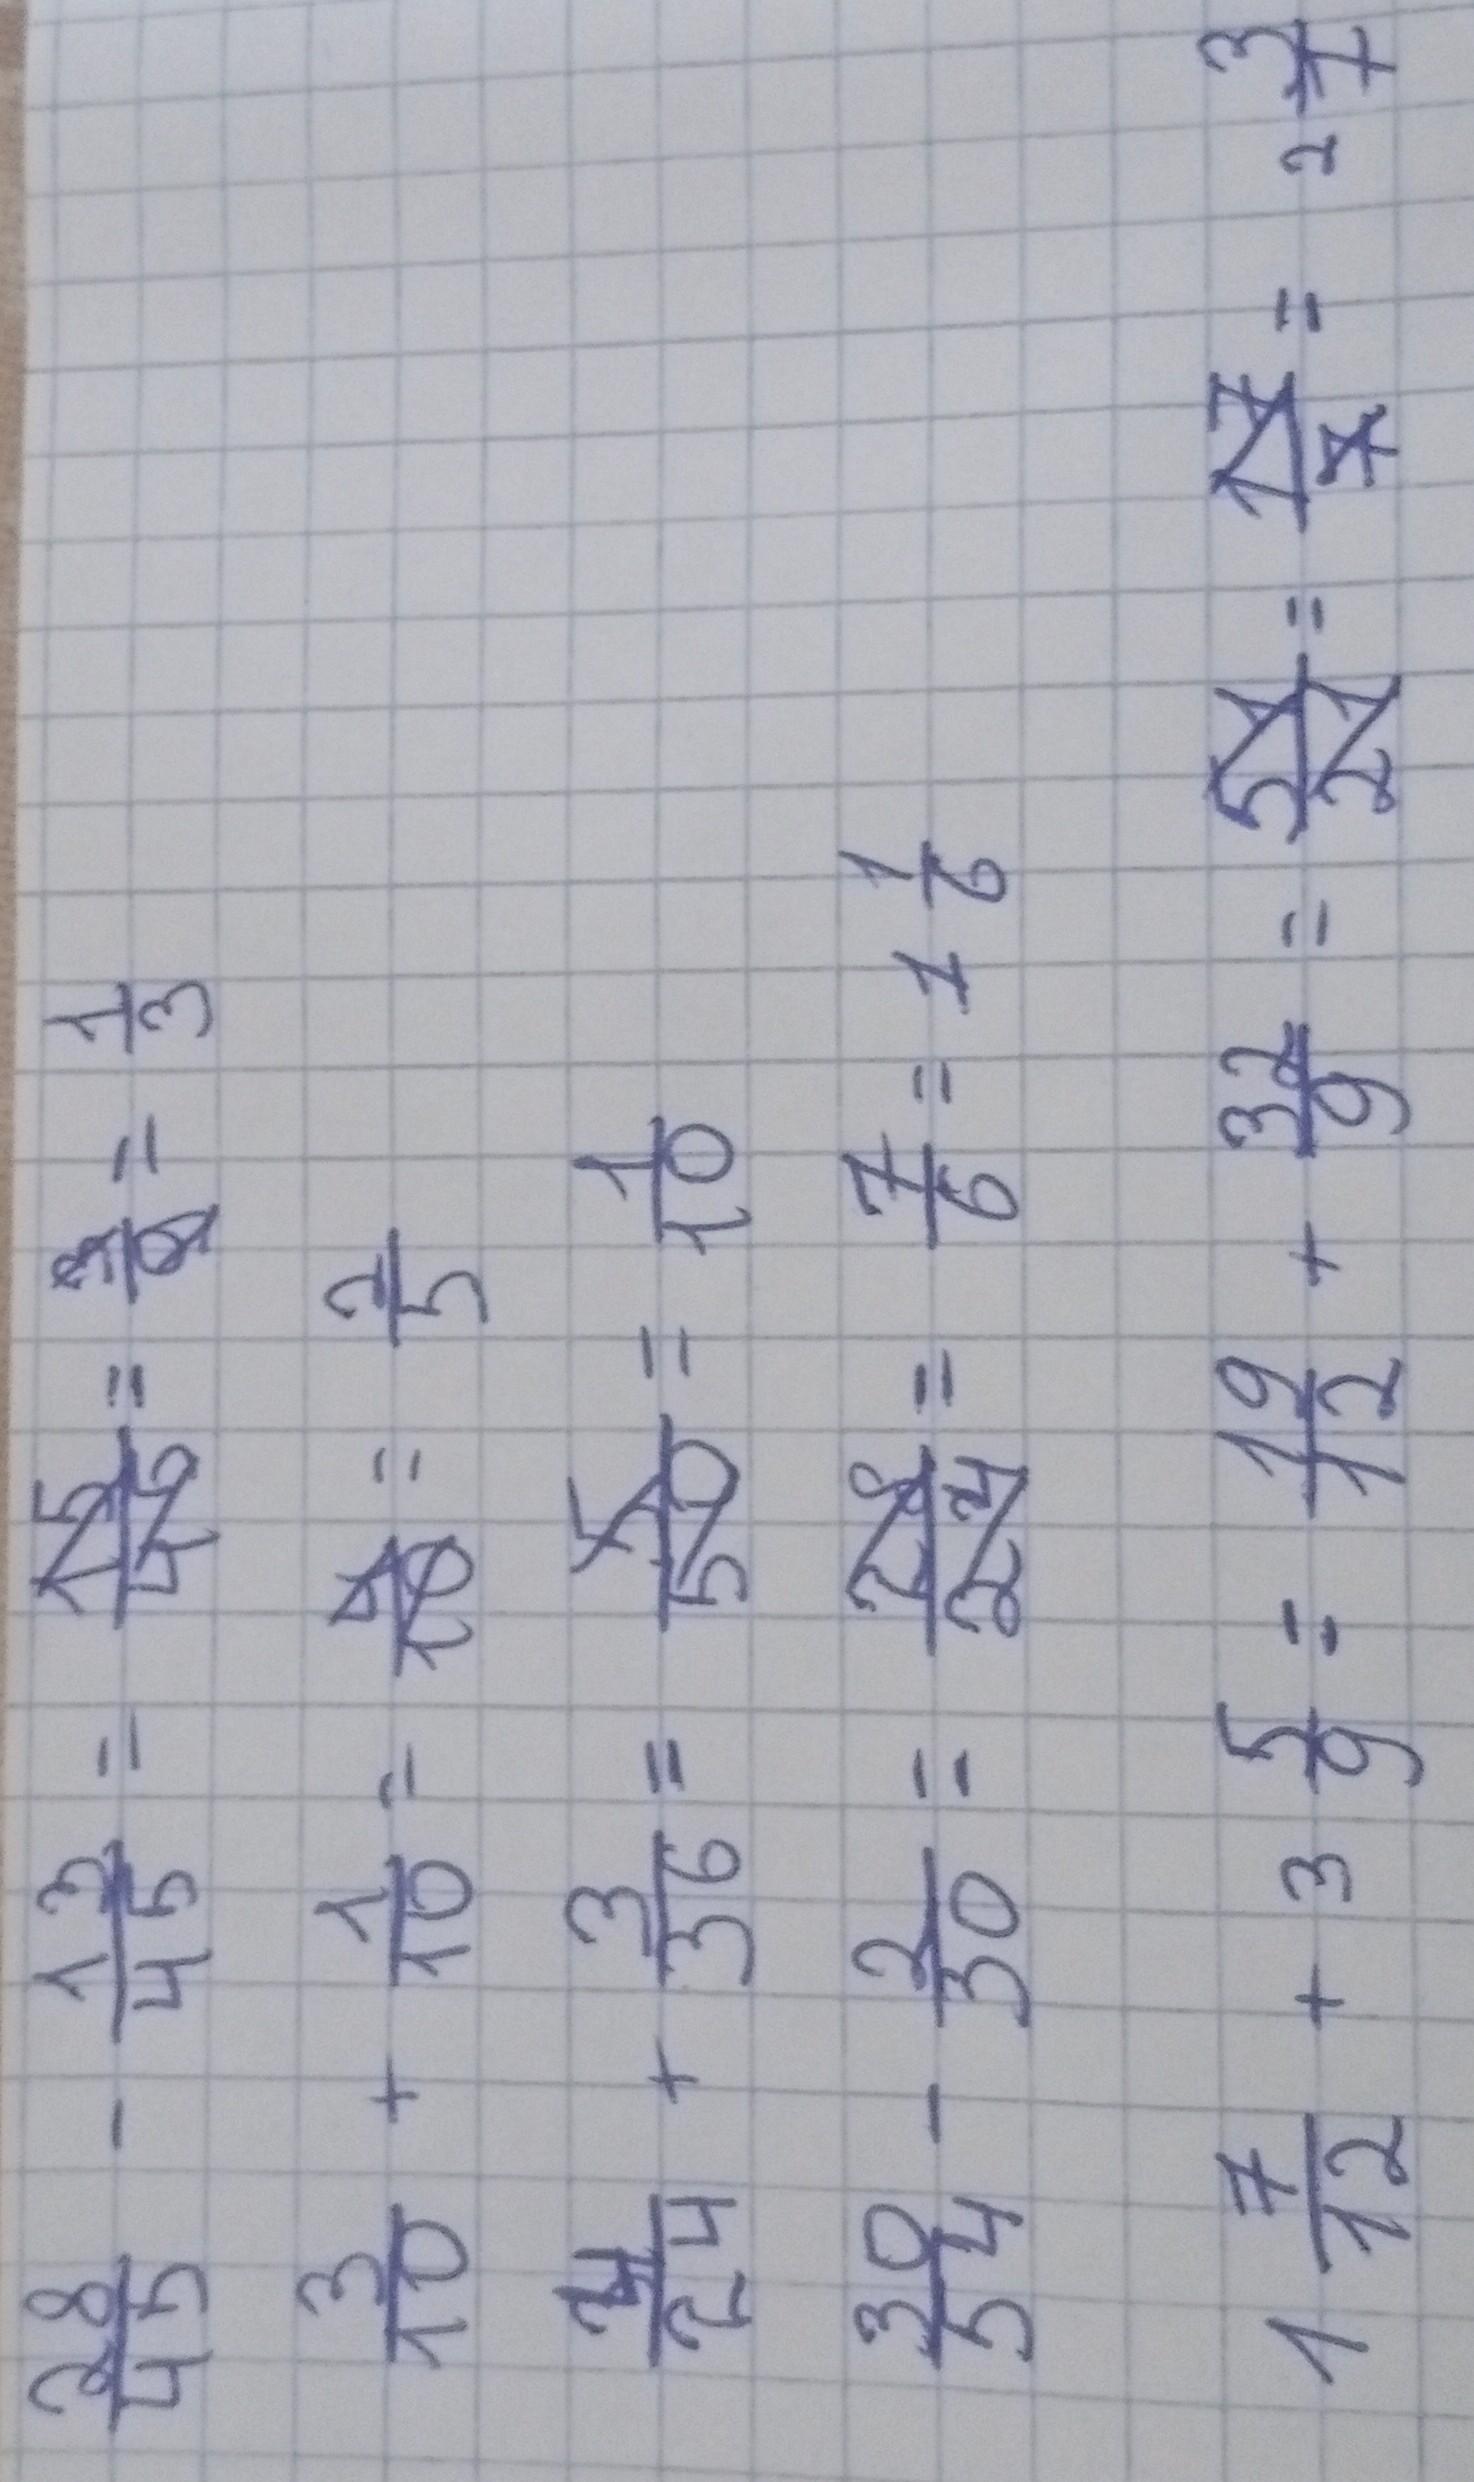 28/45 - 13/45 = 15/45 = 3/9 = 1/3
3/10 + 1/10 = 4/10 = 2/5
2/24 + 3/36 = 5/50 = 1/10
30/54 - 2/30 = 28/24 = 7/6 = 1 1/6
1 7/12 + 3 5/9 = 19/12 + 32/9 = 51/21 = 17/7 = 2 3/7